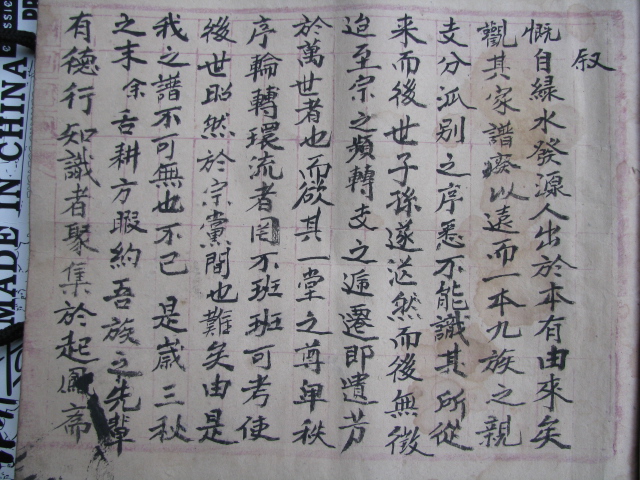 叙
慨自緑水發源人出於本有由來矣
觀其家譜 以遠而一本九族之親
支分派别之序悉不能識其所從
来而後世子孫遂泛然而後無徵
迨至宗之頻轉支之遞遷即遺芳
於萬世者也而欲其一堂之尊卑秩
序輪轉環流者罔不班班可考使
後世昭然於宗黨間也難矣由是
我之譜不可無也不已 是歲三秋
之末余舌耕方暇約吾族之先輩
有德行知識者聚集於起鳳斋
MADE IN CHINA